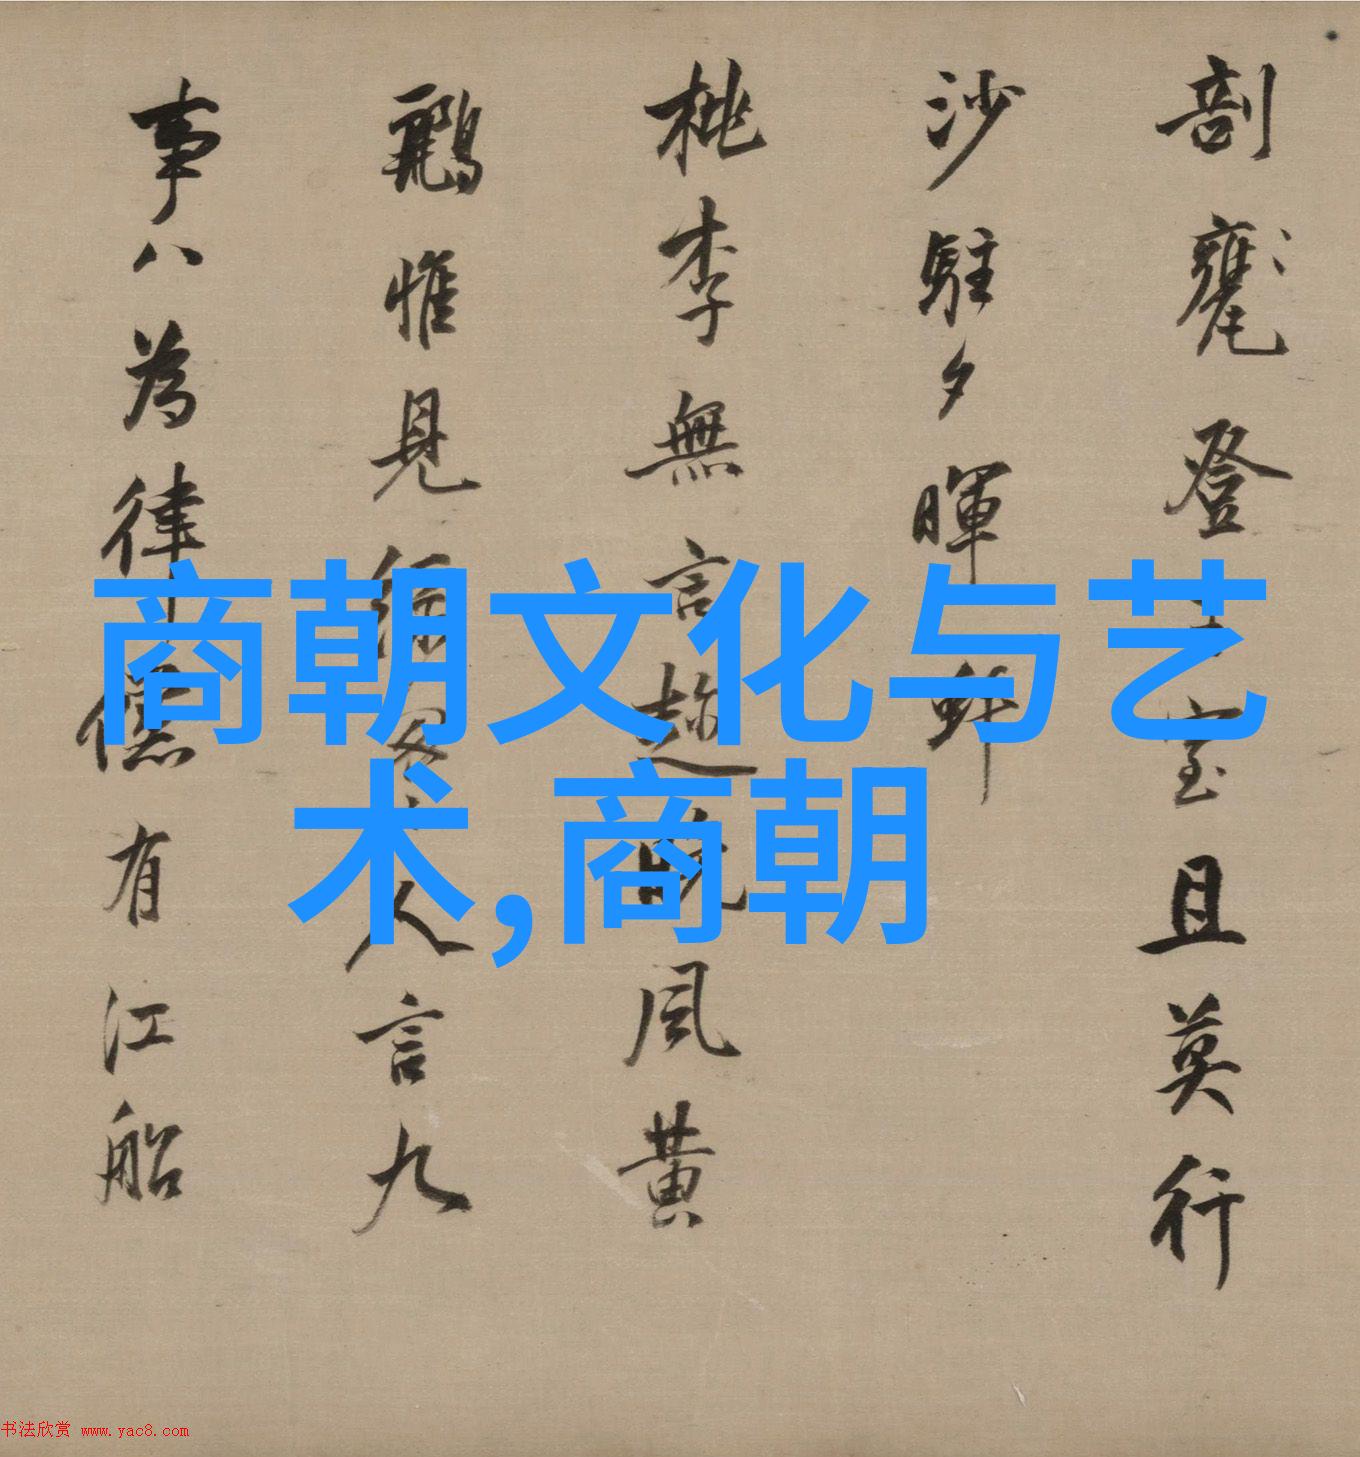 剖甕登室且莫行
沙駐夕暉
桃李無言趂晚風黃
惟見人言九
事八為律有江船
商朝文化与艺
术,商朝
书法欣赏 www.yac8.com